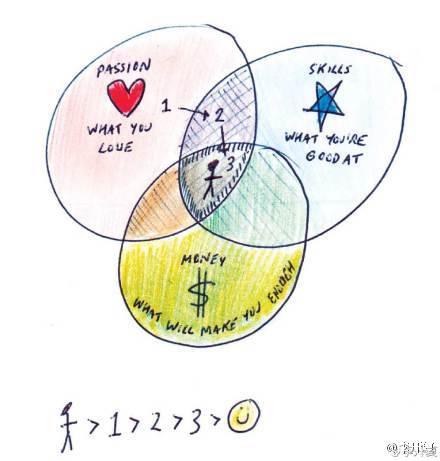 PASSION
WHAT YOU
LOVE
SKILLS
WHAT YOU'RE
GOOD AT
1
2
3
MONEY
$
WHAT WILL MAKE YOU ENOUGH
> 1 > 2 > 3 >